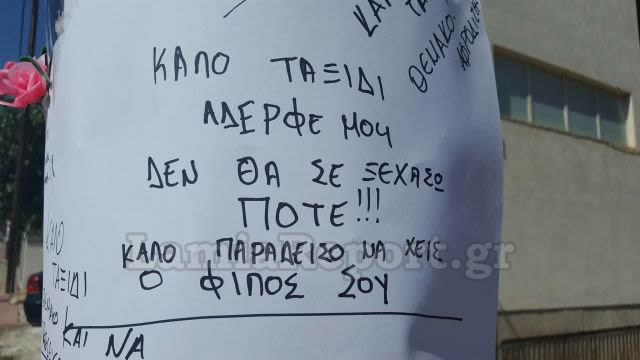 ΚΑΛΟ ΤΑΞΙΔΙ
ΑΔΕΡΦΕ ΜΟΥ
ΔΕΝ ΘΑ ΣΕ ΞΕΧΑΣΩ
ΠΟΤΕ!!!
ΚΑΛΟ ΠΑΡΑΔΕΙΣΟ ΝΑ ΧΕΙΣ
Ο ΦΙΠΟΣ ΣΟΥ
ΚΑΛΟ
ΤΑΞΙΔΙ
ΚΑΙ
ΝΑ
LamiaReport.gr